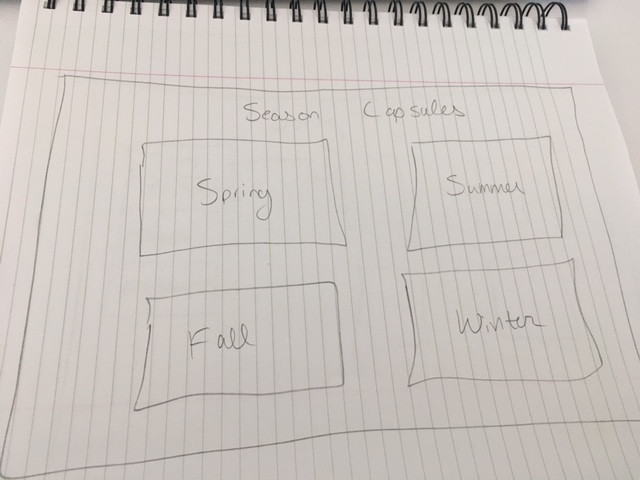 Season Capsules
Spring
Summer
Fall
Winter